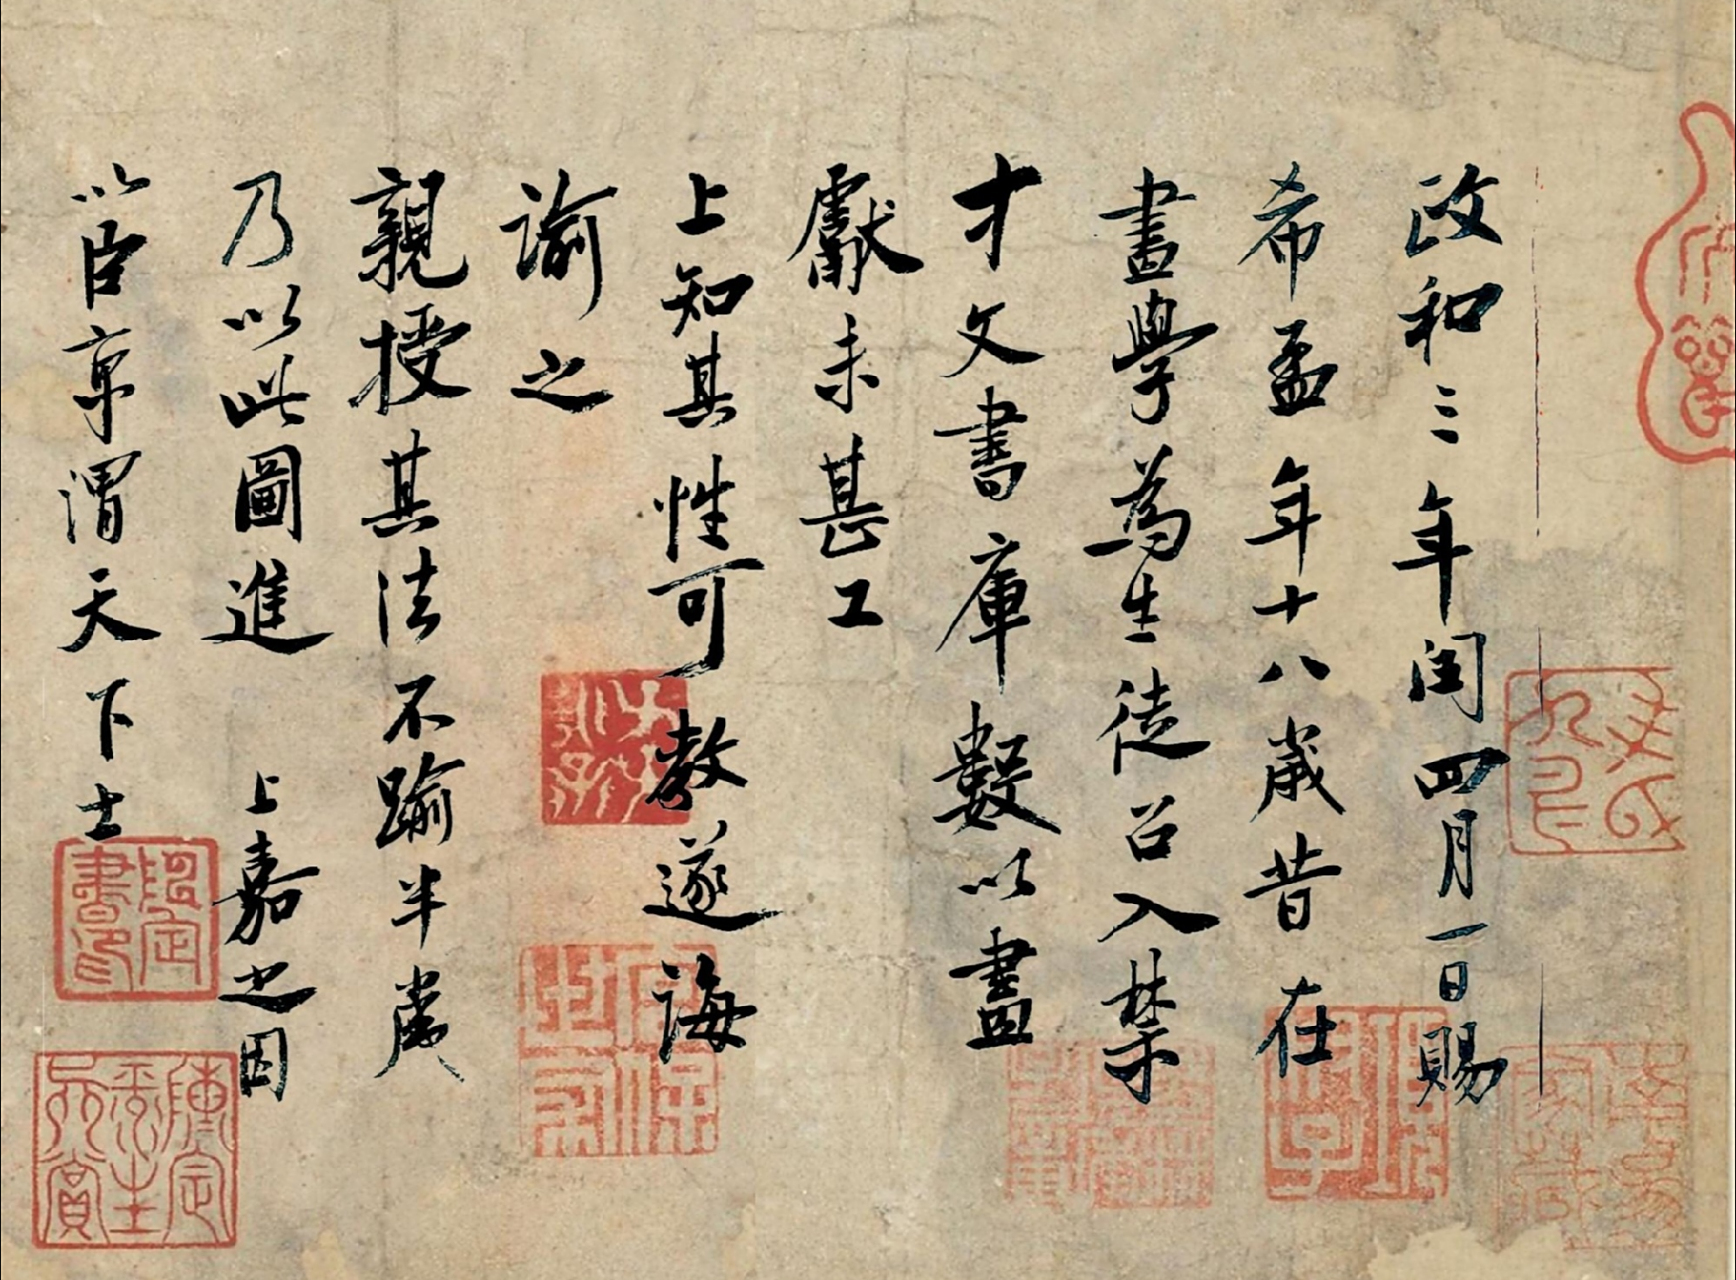 政和三年閏四月一日賜
希孟年十八歲昔在
畫學為生徒召入禁
才文書庫數以畫
獻未甚工
上知其性可教遂誨
諭之
親授其法不踰半歲
乃以此圖進 上嘉之因
以臣京謂天下士